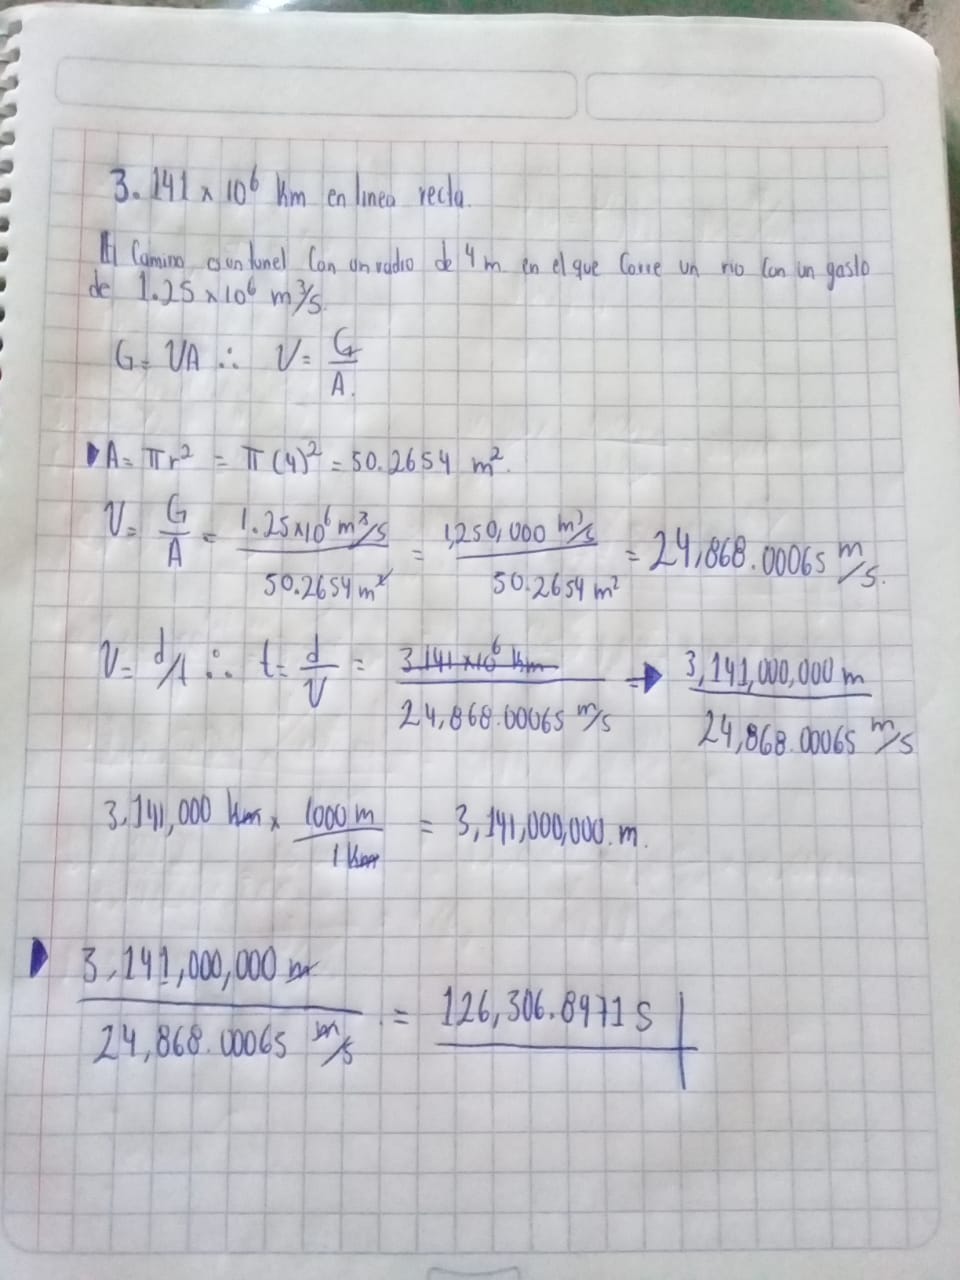 3.141 x 10⁶ Km en linea recta.
El Camino es un tunel Con un radio de 4 m en el que Corre un rio Con un gasto
de 1.25 x10⁶ m³/s.
G= VA ∴ V= G/A.
A= πr² = π(4)² = 50.2654 m².
V= G/A = 1.25x10⁶ m³/s / 50.2654 m² = 1,250,000 m³/s / 50.2654 m² = 24,868.00065 m/s.
V= d/t ∴ t= d/V = 3.141 x10⁶ Km / 24,868.00065 m/s → 3,141,000,000 m / 24,868.00065 m/s
3,141,000 Km x 1000 m / 1 Km = 3,141,000,000 m.
3,141,000,000 m / 24,868.00065 m/s = 126,306.8971 s